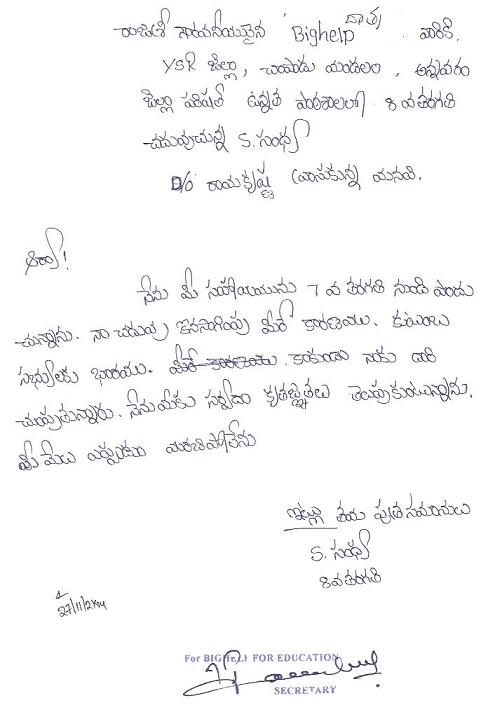 రాజశ్రీ గౌరవనీయులైన "Bighelp" దాత్రు వారికి.
YSR జిల్లా, చాపాడు మండలం, అన్నవరం
జిల్లా పరిషత్ ఉన్నత పాఠశాలలో 8 వ తరగతి
చదువుచున్న S. సంధ్య
D/o రామకృష్ణ వ్రాసుకున్న మనవి.
ఆర్యా!
నేను మీ సహాయమును 7 వ తరగతి నుండి పొందు
చున్నాను. నా చదువు కొనసాగింపు మీరే కారణము. కుటుంబ
సభ్యులకు భారము. మీరే కారణము. కాకుండా నాకు దారి
చూపుతున్నారు. నేను మీకు సర్వదా కృతజ్ఞతలు తెలుపుకుంటున్నాను.
మీ మేలు ఎప్పుడూ మరచిపోలేను
ఇట్లు తమ పుత్ర సమానులు
S. సంధ్య
8 వ తరగతి
27/11/2014
For BIGHELP FOR EDUCATION
SECRETARY